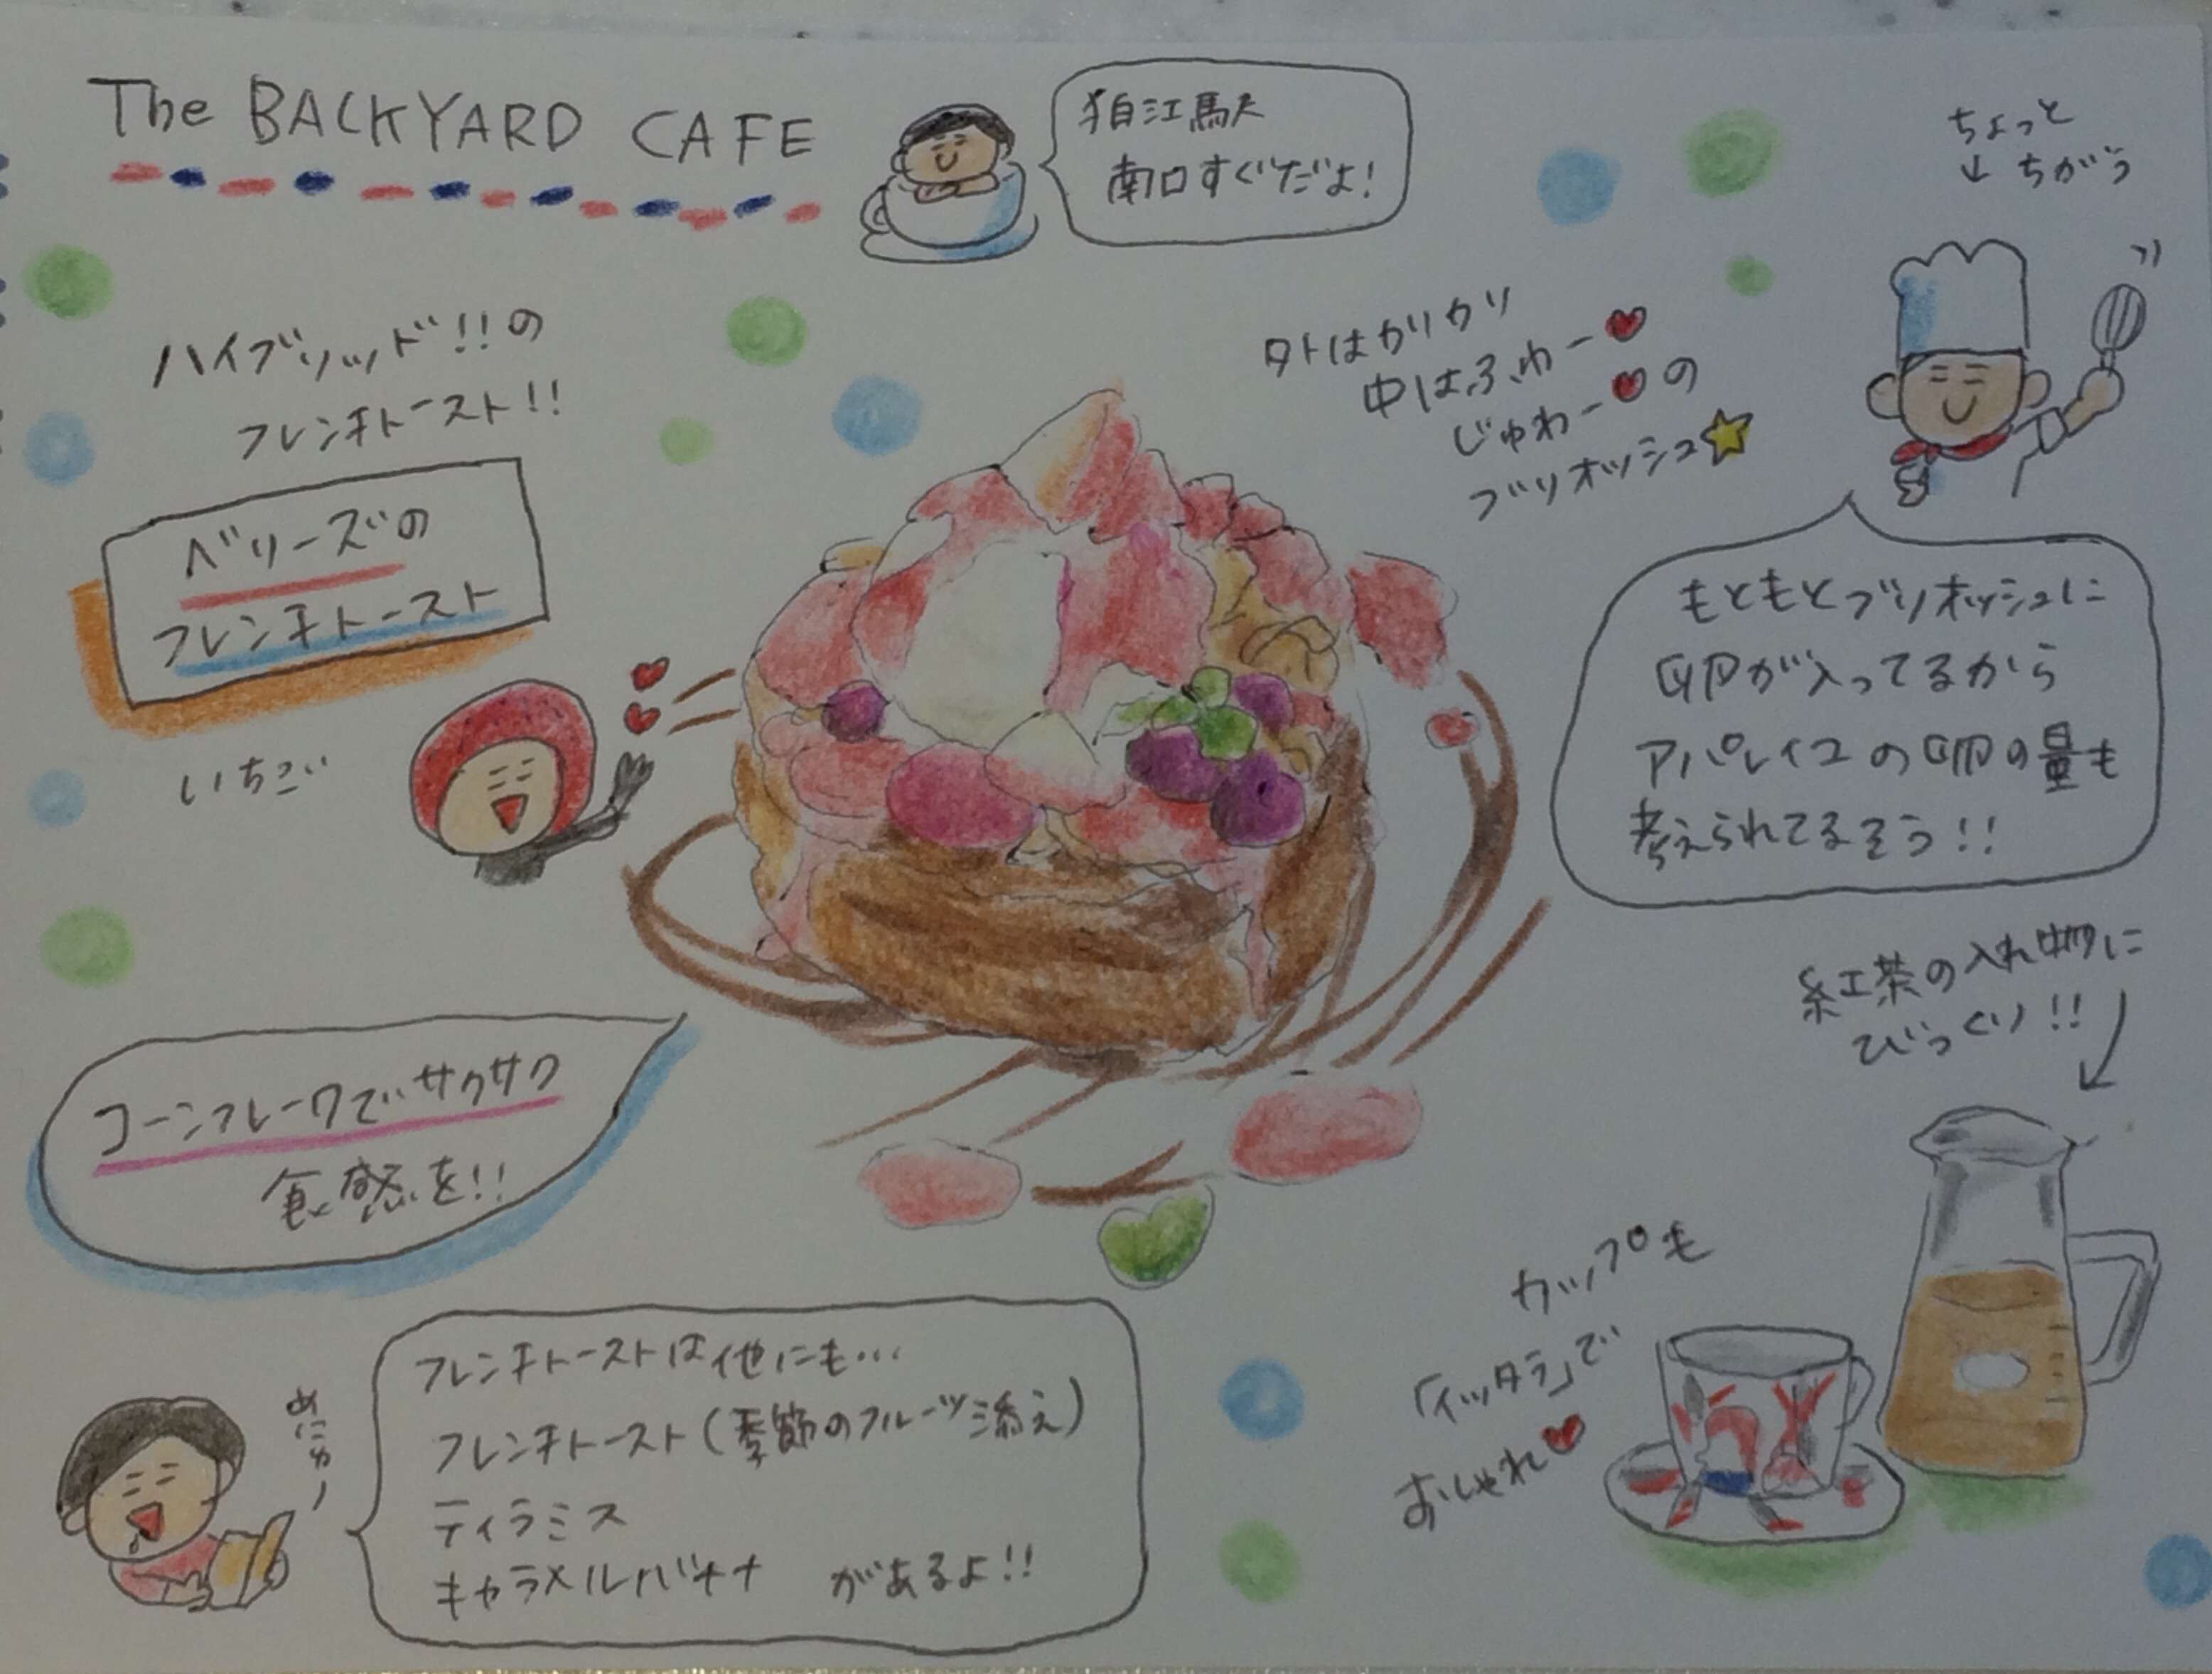 The BACKYARD CAFE
狛江駅
南口すぐだよ!
ちょっと
↓ ちがう
ハイブリッド!!の
フレンチトースト!!
外はカリカリ
中はふわー♥
じゅわー♥の
ブリオッシュ★
ベリーズの
フレンチトースト
いちごぃ
もともとブリオッシュに
卵が入ってるから
アパレイユの卵の量も
考えられてるそう!!
紅茶の入れ物に
びっくり!!
コーンフレークでサクサク
食感を!!
カップも
「イッタラ」で
おしゃれ♥
めにゅー
フレンチトーストは他にも…
フレンチトースト(季節のフルーツ添え)
ティラミス
キャラメルバナナ があるよ!!